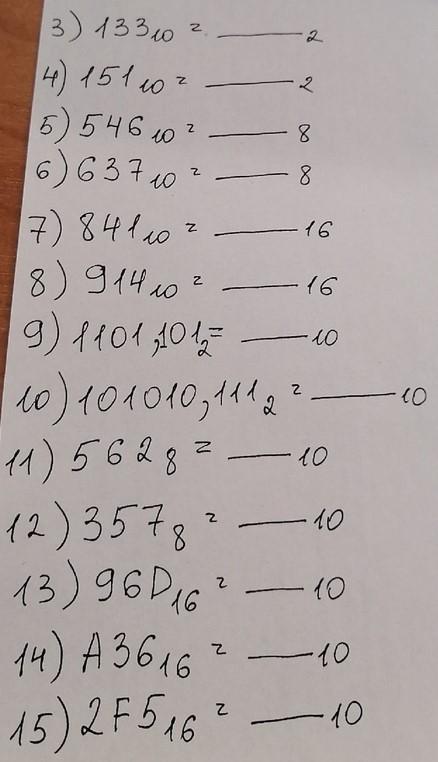 3) 133₁₀ = ——— ₂
4) 151₁₀ = ——— ₂
5) 546₁₀ = ——— ₈
6) 637₁₀ = ——— ₈
7) 841₁₀ = ——— ₁₆
8) 914₁₀ = ——— ₁₆
9) 1101,101₂ = ——— ₁₀
10) 101010,111₂ = ——— ₁₀
11) 562₈ = ——— ₁₀
12) 357₈ = ——— ₁₀
13) 96D₁₆ = ——— ₁₀
14) A36₁₆ = ——— ₁₀
15) 2F5₁₆ = ——— ₁₀